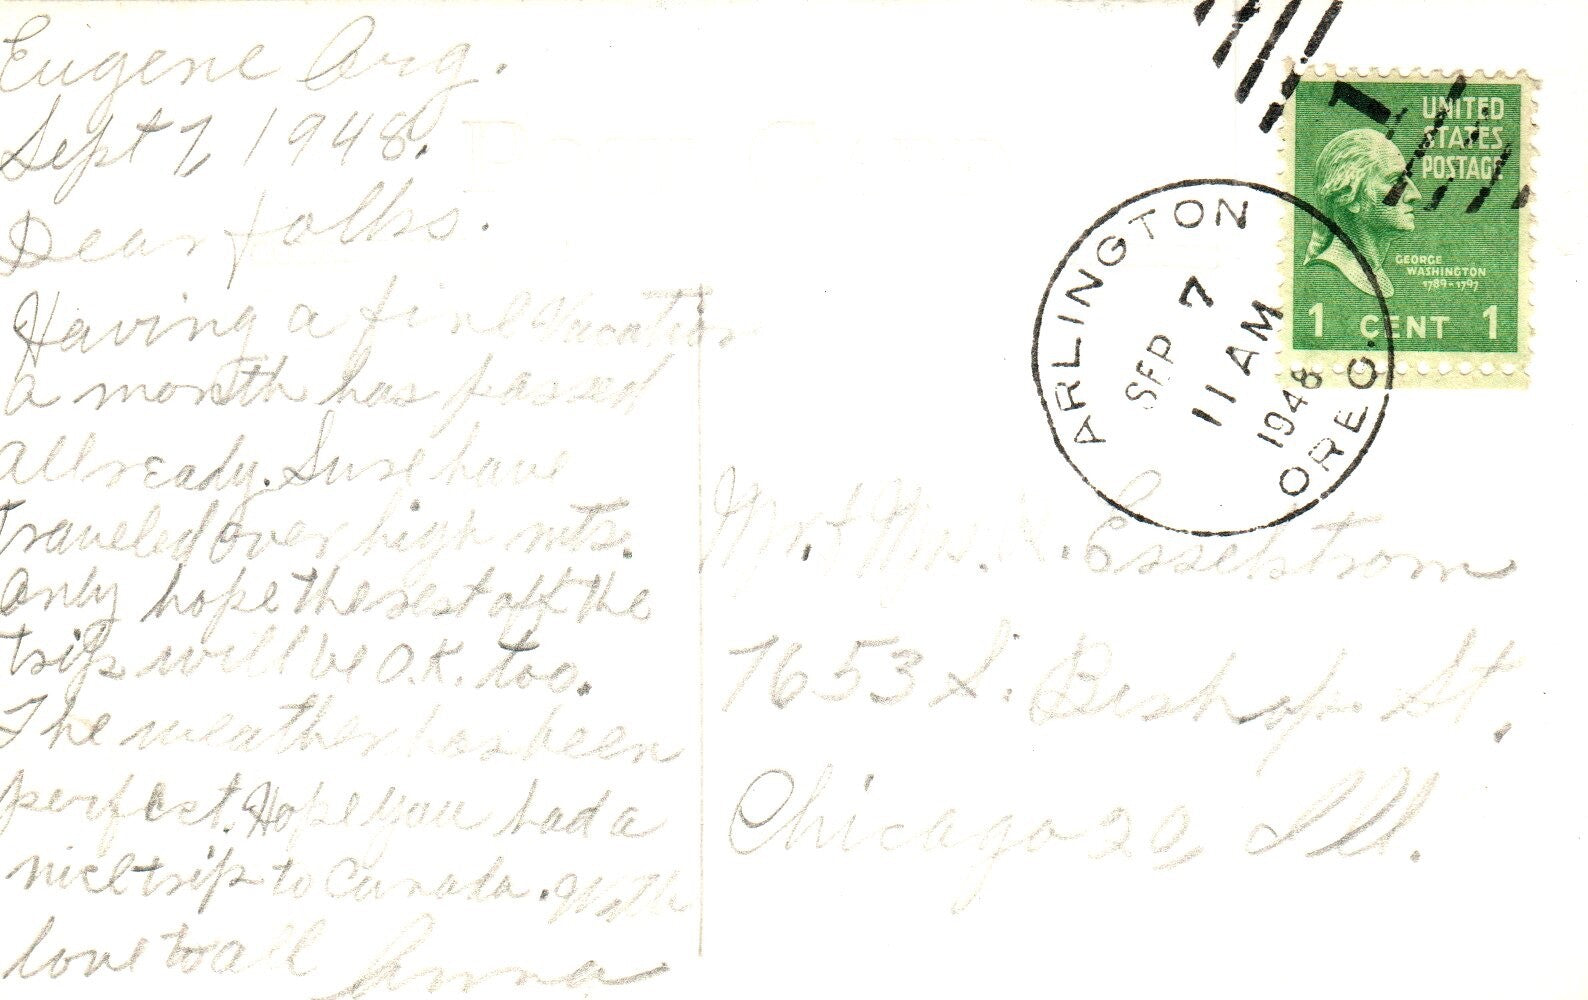 Eugene Org.
Sept 7, 1948.
Dear folks.
Having a fine Vacation
a month has passed
allready. Sure have
traveled over high mts.
Only hope the rest off the
trip will be O.K. too.
The weather has been
perfect. Hope you had a
nice trip to Canada. With
love to all Anna
UNITED
STATES
POSTAGE
GEORGE
WASHINGTON
1789-1797
1 CENT 1
ARLINGTON
SEP 7
11 AM
1948
OREG.
Mr. + Mrs. Esselstrom
7653 S. Bishop St.
Chicago 20, Ill.